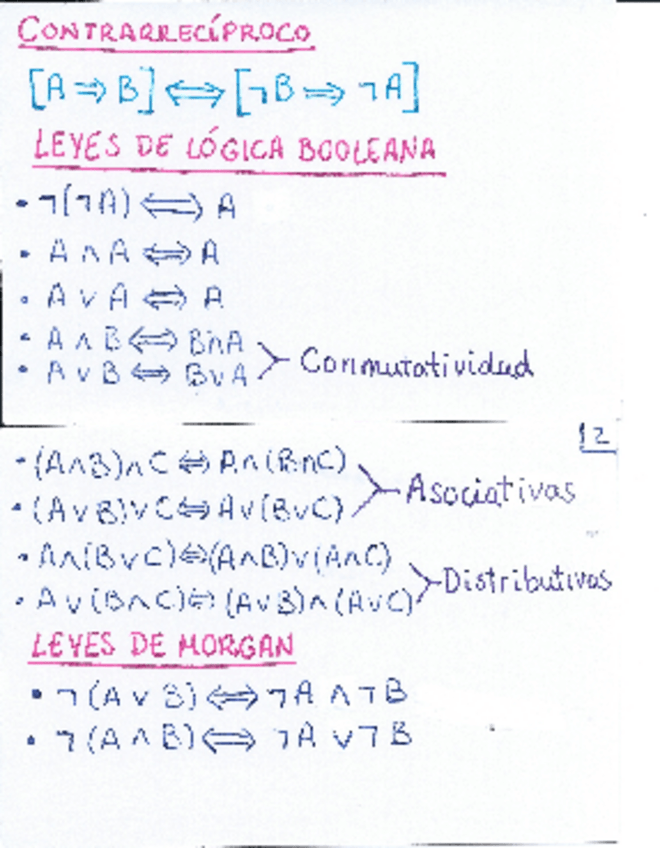 CONTRARRECÍPROCO
[A ⇒ B] ⟺ [¬B ⟹ ¬A]
LEYES DE LÓGICA BOOLEANA
• ¬(¬A) ⟺ A
• A ∧ A ⟺ A
• A ∨ A ⟺ A
• A ∧ B ⟺ B∧A
• A ∨ B ⟺ B∨A
Conmutatividad
12
• (A∧B)∧C ⇔ A∧(B∧C)
• (A∨B)∨C ⇔ A∨(B∨C)
Asociativas
• A∧(B∨C)⇔(A∧B)∨(A∧C)
• A∨(B∧C)⇔(A∨B)∧(A∨C)
Distributivas
LEYES DE MORGAN
• ¬(A ∨ B) ⟺ ¬A ∧ ¬B
• ¬(A ∧ B) ⟺ ¬A ∨ ¬B